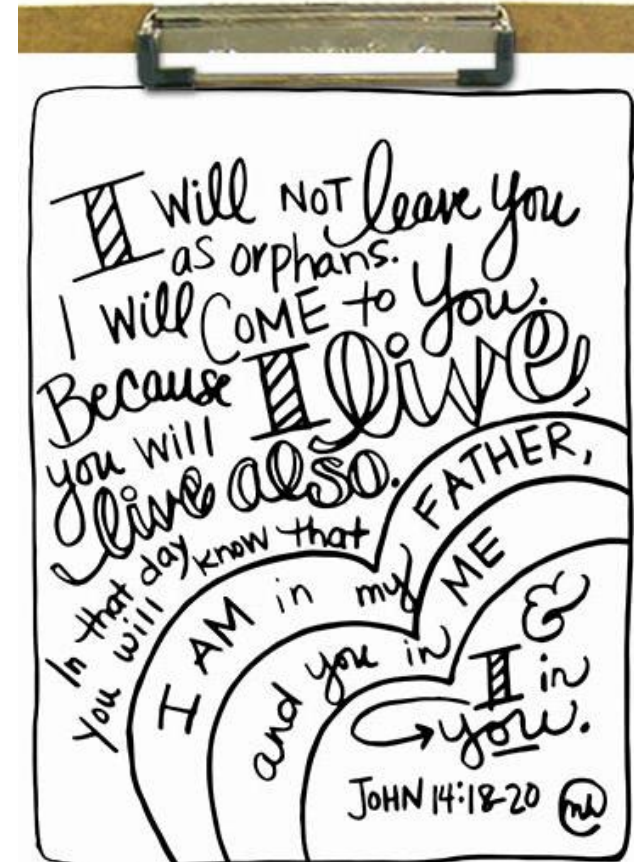 I will NOT leave you
as orphans.
I will COME to You.
Because I live,
you will
live also.
In that day
you will know that
I AM in my FATHER,
and you in ME
&
I in
you.
JOHN 14:18-20